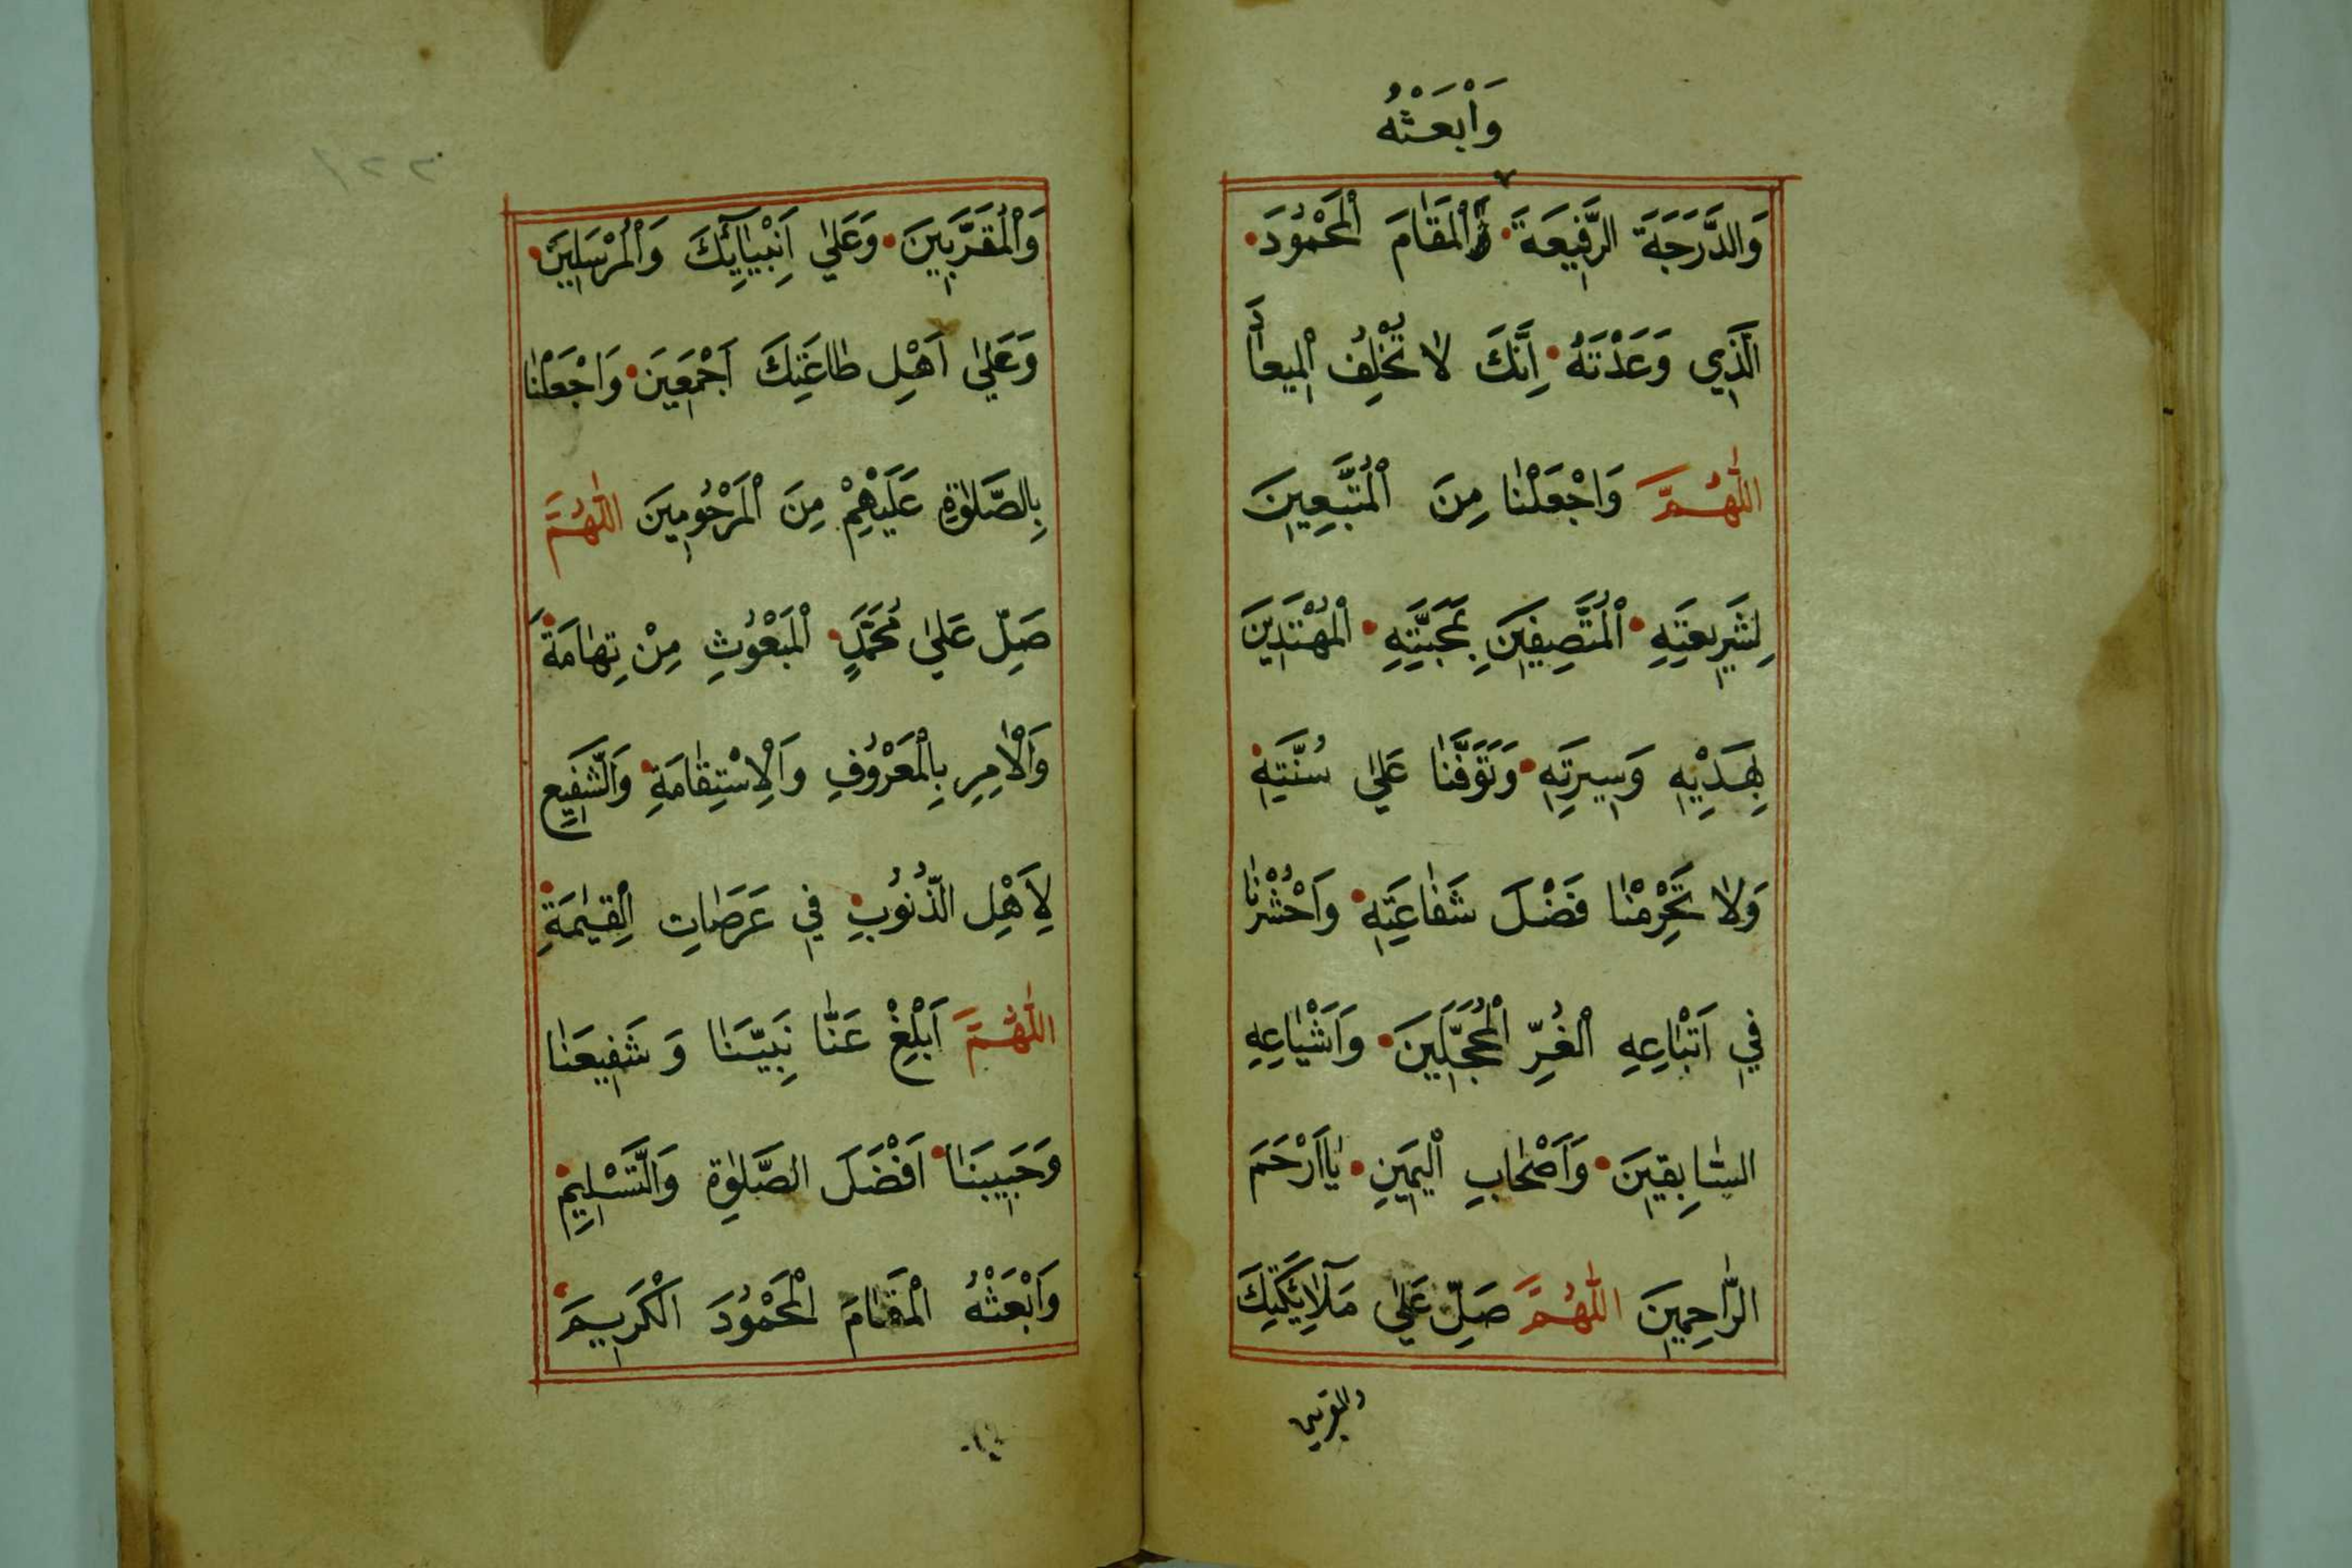 وَابْعَثْهُ
وَالدَّرَجَةَ الرَّفِيعَةَ وَالْمَقَامَ الْمَحْمُودَ
الَّذِي وَعَدْتَهُ اِنَّكَ لَا تُخْلِفُ الْمِيعَادَ
اللّٰهُمَّ وَاجْعَلْنَا مِنَ الْمُتَّبِعِينَ
لِشَرِيعَتِهِ الْمُتَّصِفِينَ بِمَحَبَّتِهِ الْمُهْتَدِينَ
بِهَدْيِهِ وَسِيرَتِهِ وَتَوَفَّنَا عَلٰى سُنَّتِهِ
وَلَا تَحْرِمْنَا فَضْلَ شَفَاعَتِهِ وَاحْشُرْنَا
فِي اَتْبَاعِهِ الْغُرِّ الْمُحَجَّلِينَ وَاَشْيَاعِهِ
السَّابِقِينَ وَاَصْحَابِ الْيَمِينِ يَا اَرْحَمَ
الرَّاحِمِينَ اللّٰهُمَّ صَلِّ عَلٰى مَلَآئِكَتِكَ
والمقربين
١٢٢
وَالْمُقَرَّبِينَ وَعَلٰى اَنْبِيَائِكَ وَالْمُرْسَلِينَ
وَعَلٰى اَهْلِ طَاعَتِكَ اَجْمَعِينَ وَاجْعَلْنَا
بِالصَّلٰوةِ عَلَيْهِمْ مِنَ الْمَرْحُومِينَ اللّٰهُمَّ
صَلِّ عَلٰى مُحَمَّدٍ الْمَبْعُوثِ مِنْ تِهَامَةَ
وَالْاٰمِرِ بِالْمَعْرُوفِ وَالْاِسْتِقَامَةِ وَالشَّفِيعِ
لِاَهْلِ الذُّنُوبِ فِي عَرَصَاتِ الْقِيٰمَةِ
اللّٰهُمَّ اَبْلِغْ عَنَّا نَبِيَّنَا وَ شَفِيعَنَا
وَحَبِيبَنَا اَفْضَلَ الصَّلٰوةِ وَالتَّسْلِيمِ
وَابْعَثْهُ الْمَقَامَ الْمَحْمُودَ الْكَرِيمَ